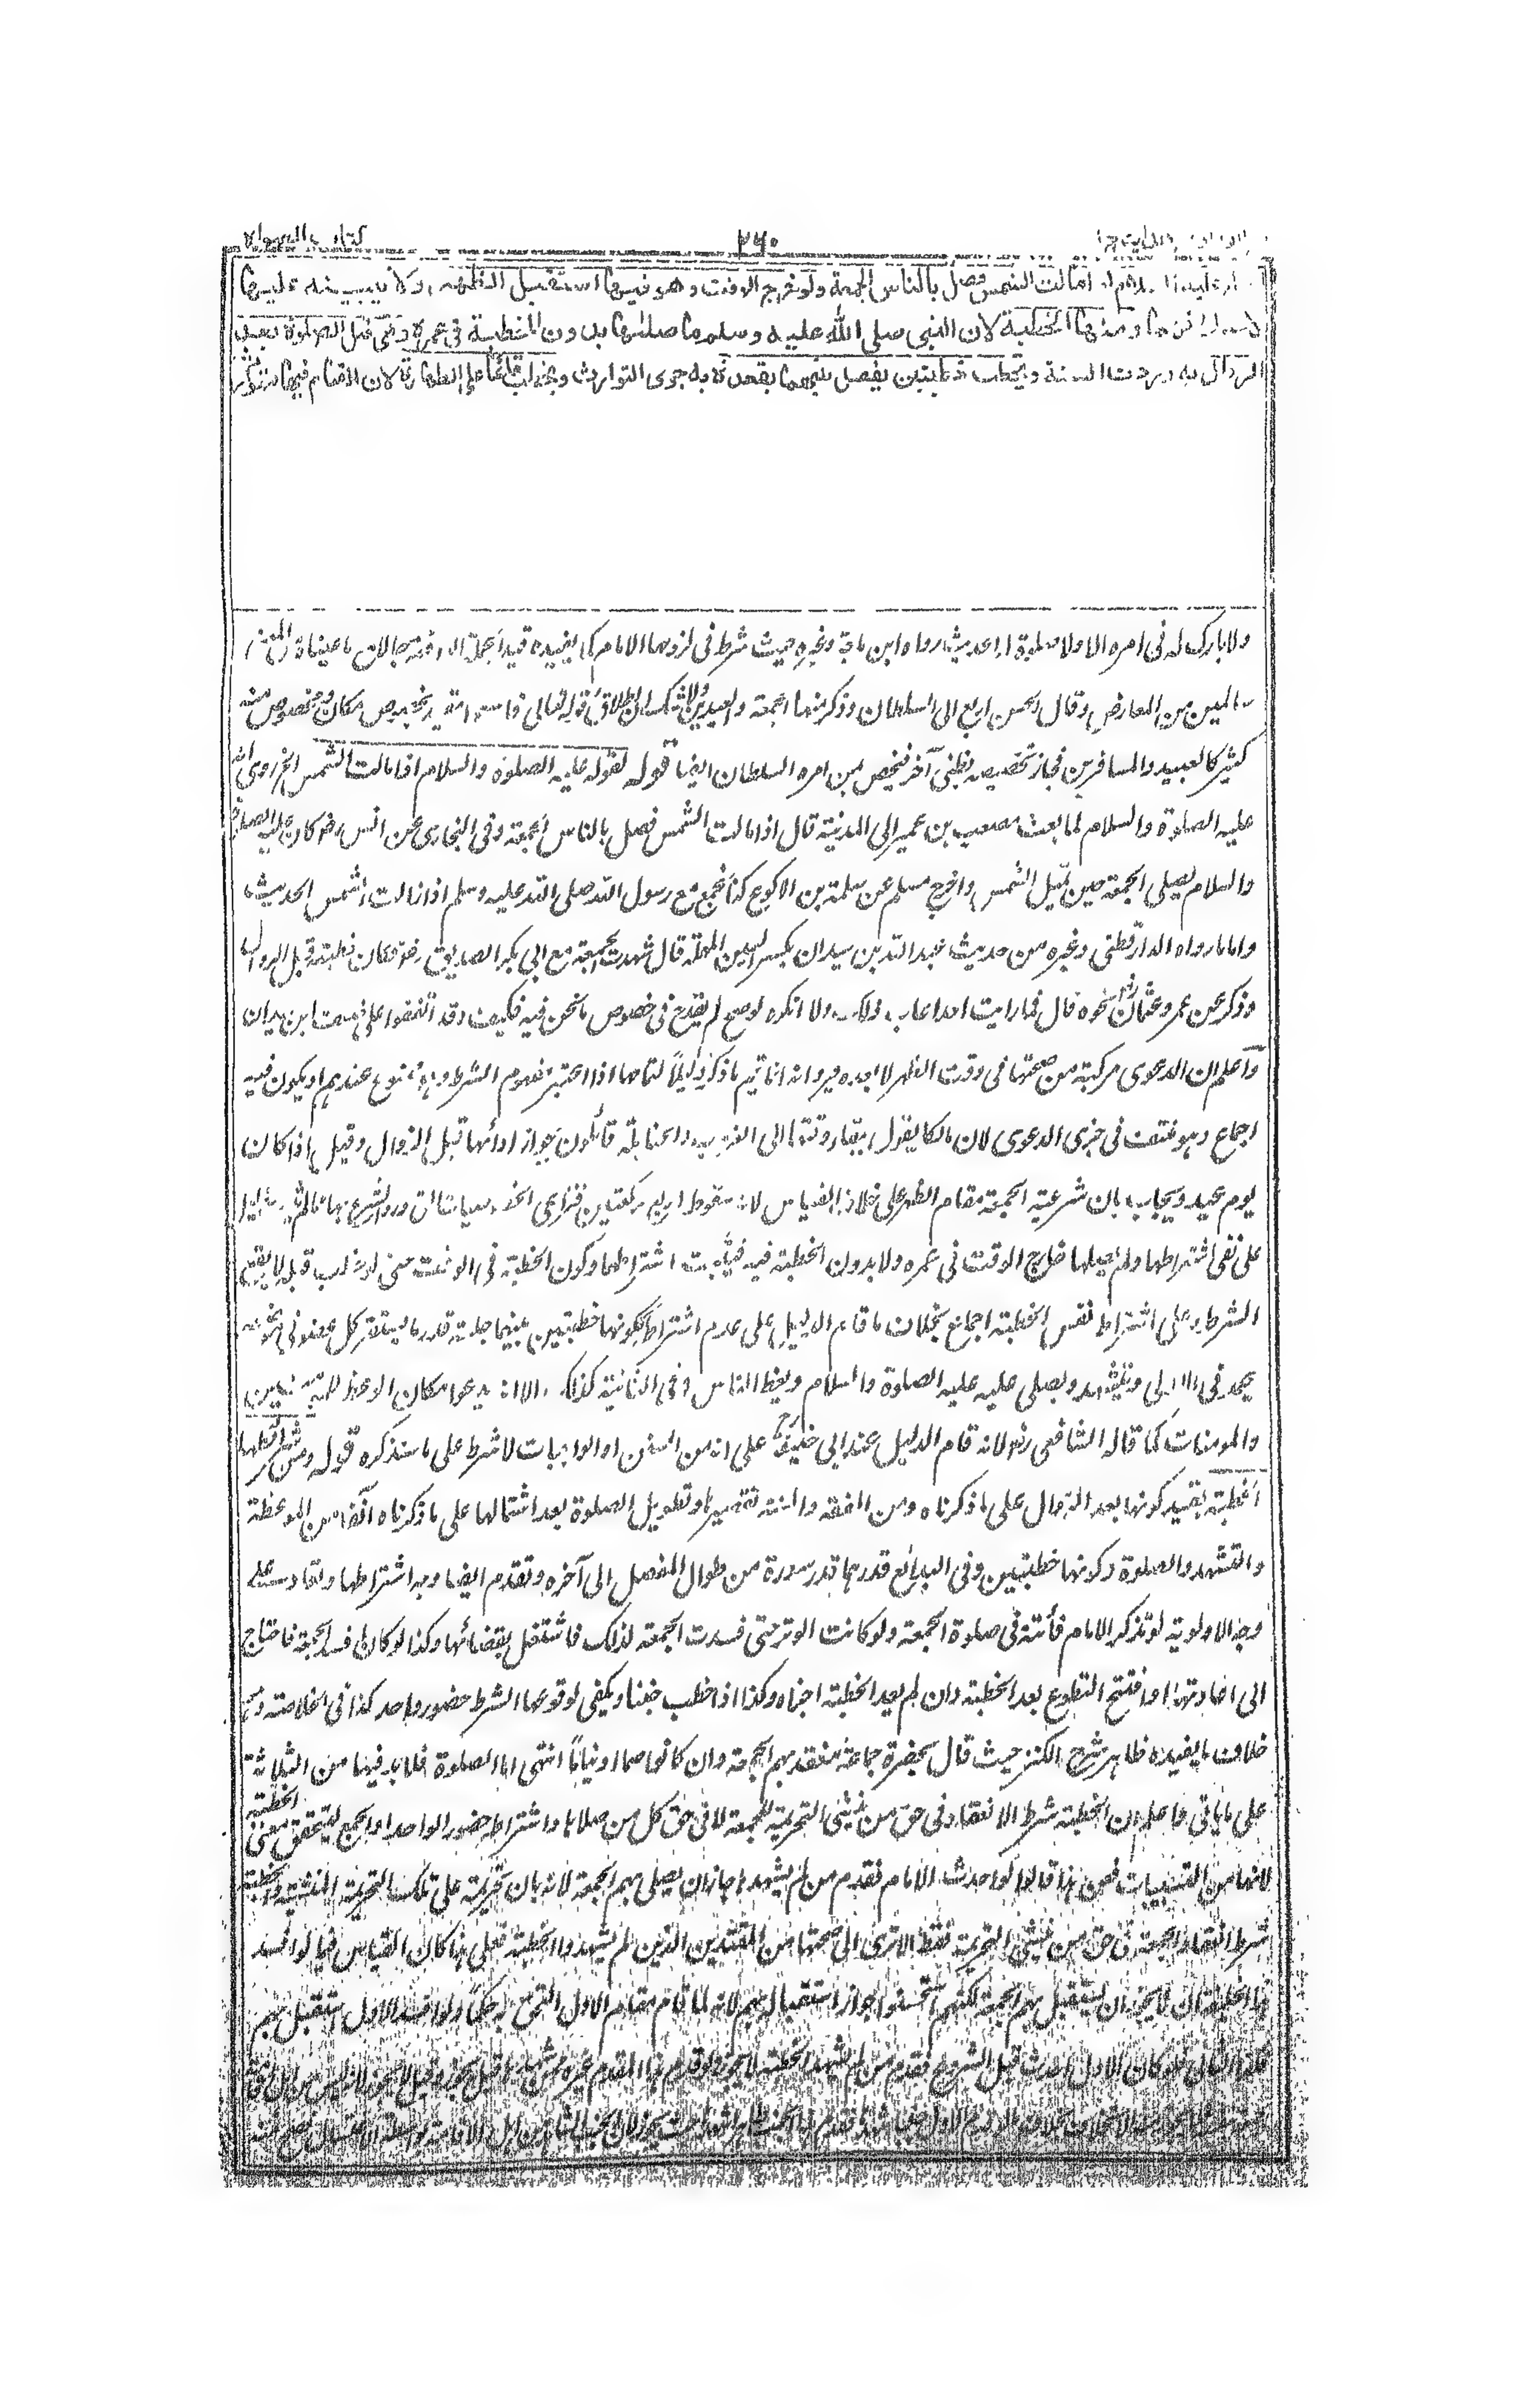 كتاب الصلوة
٢٦٠
مالت الشمس فصل بالناس الجمعة ولو خرج الوقت وهو فيها استقبل الظهر ولا يبنيه عليها
ومنها الخطبة لان النبي صلى الله عليه وسلم ما صلاها بدون الخطبة في عمره وهي قبل الصلوة بعد
الزوال به وردت السنة ويخطب خطبتين يفصل بينهما بقعدة به جرى التوارث ويخطب قائما على الطهارة لان القيام فيها متوارث
ولا بارك له في امره الا ولا صلوة له الحديث رواه ابن ماجة وغيره حيث شرط في لزومها الامام كما يفيده قيد الجملة الواقعة حالا مع ما عيناه من المعنى
سالمين من المعارض وقال الحسن اربع الى السلطان وذكر منها الجمعة والعيدين ولا شك ان اطلاق قوله تعالى فاسعوا مقيد بخصوص مكان ومخصوص منه
كثير كالعبيد والمسافرين فجاز تخصيصه بظني آخر فيخص بمن امره السلطان ايضا قوله لقوله عليه الصلوة والسلام اذا مالت الشمس الخ روى انه
عليه الصلوة والسلام لما بعث مصعب بن عمير الى المدينة قال اذا مالت الشمس فصل بالناس الجمعة وفي البخاري عن انس رض كان عليه الصلوة
والسلام يصلي الجمعة حين تميل الشمس واخرج مسلم عن سلمة بن الاكوع كنا نجمع مع رسول الله صلى الله عليه وسلم اذا زالت الشمس الحديث
واما ما رواه الدارقطني وغيره من حديث عبد الله بن سيدان بكسر السين المهملة قال شهدت الجمعة مع ابي بكر الصديق رض فكان خطبته قبل الزوال
وذكر عن عمر وعثمان رض نحوه قال فما رايت احدا عاب ذلك ولا انكره لو صح لم يقدح في خصوص ما نحن فيه فكيف وقد اتفقوا على ضعف ابن سيدان
واعلم ان الدعوى مركبة من صحتها في وقت الظهر لا بعده فيرد انه انما يتم ما ذكر دليلا لتمامها اذا اعتبر مفهوم الشرط وهو ممنوع عندهم او يكون فيه
اجماع وهو منتف في جزئي الدعوى لان مالكا يقول ببقاء وقتها الى الغروب والحنابلة قائلون بجواز ادائها قبل الزوال وقيل اذا كان
يوم عيد ويجاب بان شرعية الجمعة مقام الظهر على خلاف القياس لانه سقوط اربع بركعتين فتراعى الخصوصيات التي ورد الشرع بها ما لم يثبت دليل
على نفي اشتراطها ولم يصلها خارج الوقت في عمره ولا بدون الخطبة فيه فيثبت اشتراطهما وكون الخطبة في الوقت حتى لو خطب قبله لا يقع
الشرط وعلى اشتراط نفس الخطبة اجماع بخلاف ما قام الدليل على عدم اشتراطه ككونها خطبتين بينهما جلسة قدر ما يستقر كل عضو في موضعه
يحمد في الاولى ويتشهد ويصلي عليه عليه الصلوة والسلام ويعظ الناس وفي الثانية كذلك الا انه يدعو مكان الوعظ للمؤمنين
والمومنات كما قاله الشافعي رض لانه قام الدليل عند ابي حنيفة رح على انه من السنن او الواجبات لا شرط على ما سنذكره قوله ومن شرائطها
الخطبة بقيد كونها بعد الزوال على ما ذكرناه ومن الفقه والسنة تقصيرها وتطويل الصلوة بعد اشتمالها على ما ذكرناه آنفا من الموعظة
والتشهد والصلوة وكونها خطبتين وفي البدائع قدرهما قدر سورة من طوال المفصل الى آخره وتقدم ايضا وجه اشتراطها وتعاد على
وجه الاولوية لو تذكر الامام فائتة في صلوة الجمعة ولو كانت الوتر حتى فسدت الجمعة لذلك فاشتغل بقضائها وكذا لو كان افسد الجمعة فاحتاج
الى اعادتها او افتتح التطوع بعد الخطبة وان لم يعد الخطبة اجزاه وكذا اذا خطب جنبا ويكفي لوقوعها الشرط حضور واحد كذا في الخلاصة وهو
خلاف ما يفيده ظاهر شرح الكنز حيث قال بحضرة جماعة تنعقد بهم الجمعة وان كانوا صما او نياما انتهى اما الصلوة فلا بد فيها من الثلاثة
على ما ياتي واعلم ان الخطبة شرط الانعقاد في حق من ينشئ التحريمة للجمعة لا في حق كل من صلاها واشتراط حضور الواحد او الجمع ليتحقق معنى الخطبة
لانها من النسبيات فعن هذا قالوا لو احدث الامام فقدم من لم يشهدها جاز ان يصلي بهم الجمعة لانه بان تحريمته على تلك التحريمة المنشئة والخطبة
شرط انعقاد الجمعة في حق من ينشئ التحريمة فقط الا ترى الى صحتها من المقتدين الذين لم يشهدوا الخطبة فعلى هذا كان القياس فيما لو افسد
هذا الخليفة ان لا يجوز ان يستقبل بهم الجمعة لكنهم استحسنوا جواز استقباله بهم لانه لما قام مقام الاول التحق به حكما ولو افسد الاول استقبل بهم
فكذا الثاني فلو كان الاول احدث قبل الشروع فقدم من لم يشهد الخطبة لا يجوز